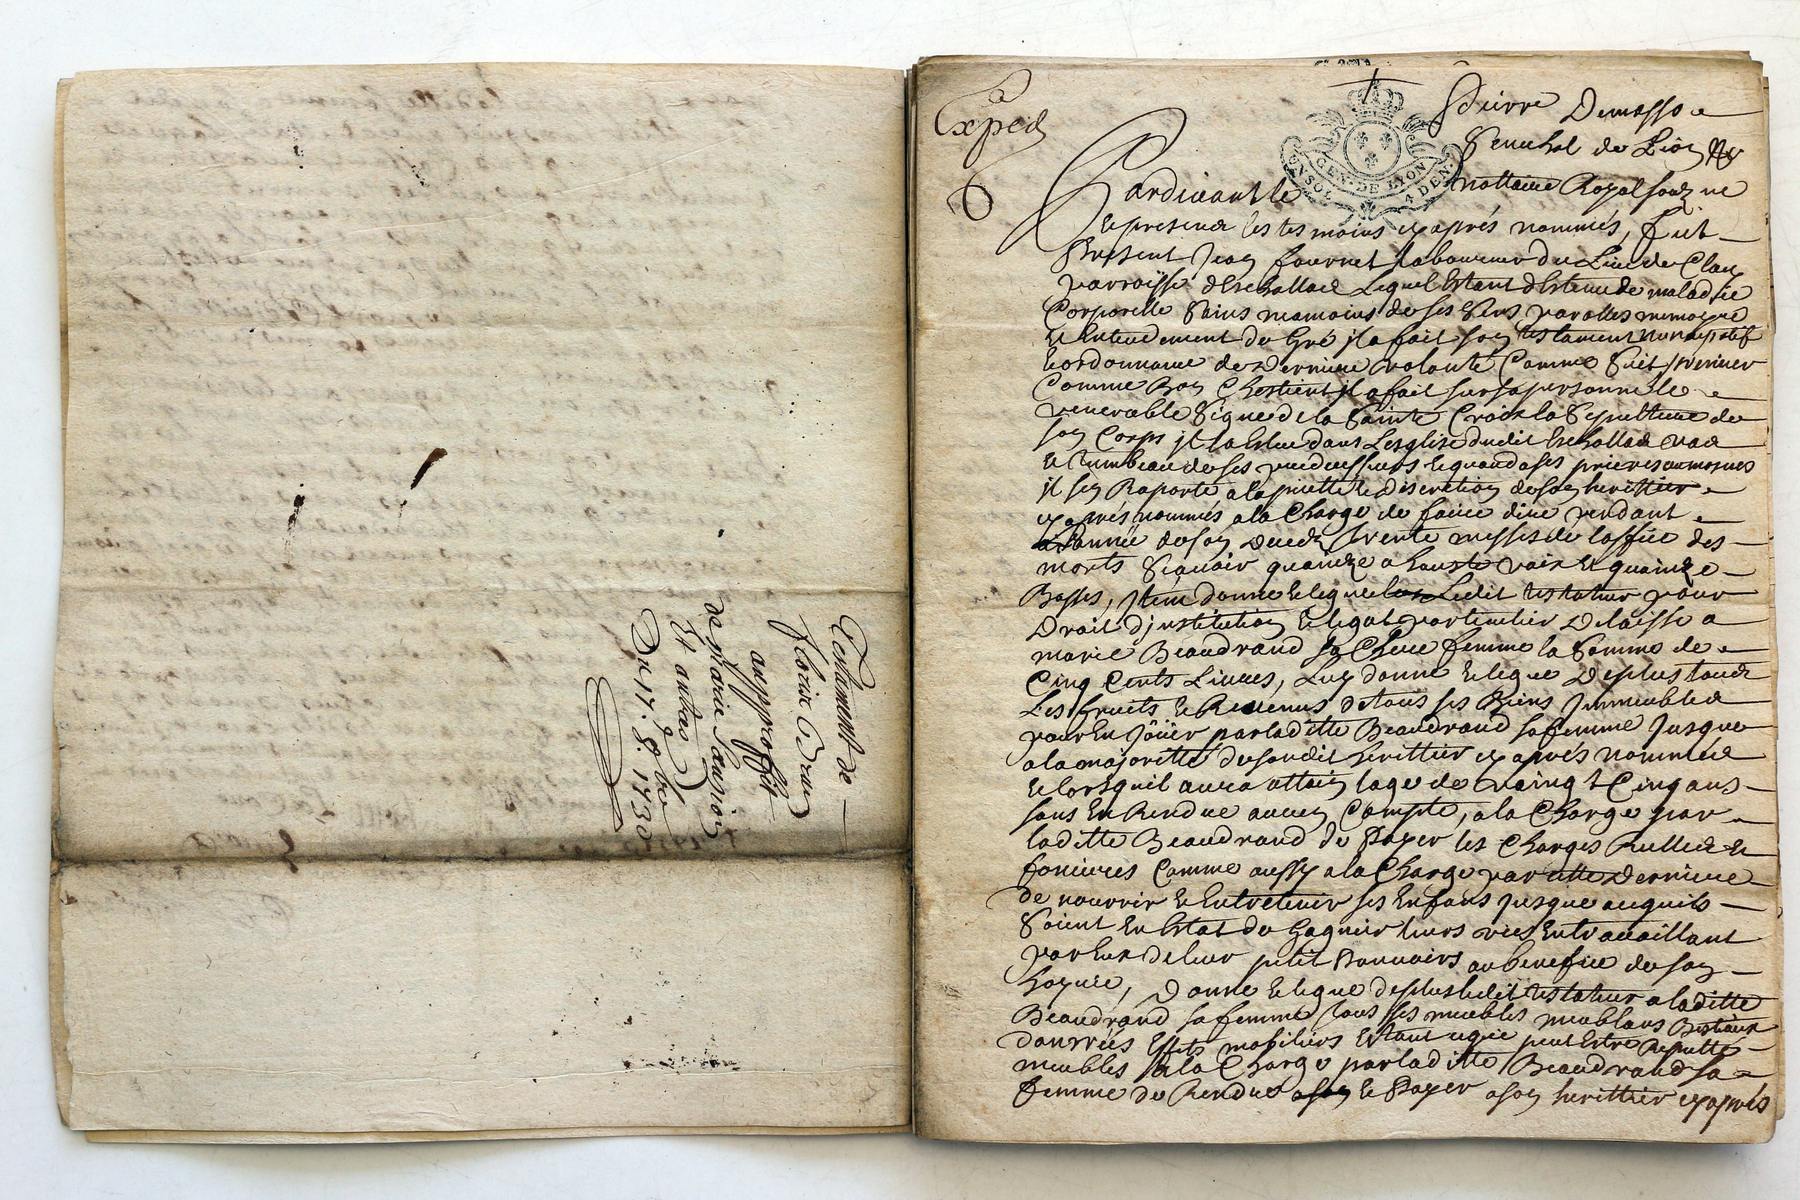 Testament de
fleurie Brun
au proffit
de Marie
Et autres
Du 17. 8.bre 1730
Exped
GEN. DE LYON
Pierre Demasso
Senechal de Lion
Pardevant le nottaire Royal souz.ne
Et presence les tesmoins cy apres nommés, fut
Present Jean fournet laboureur du Lieu de
parroisse d'Eschallad Lequel Estant destenu de maladie
Corporelle Sains neamoins de ses Sens parolles memoyre
Et Entendement de Gré il a fait son testament nuncupatif
Et ordonnance de Derniere volonté Comme Suit premier
Comme Bon Chestient il a fait sur sa personne le
venerable Signe de la Sainte Croix la Sepulture de
son Corps il la Eslue dans L'esglise dudit Eschallad
le Tumbeau de ses predecesseurs Et quand a ses prieres aumosnes
il sen Raporte a la pietté Et discretion de son herittier
cy apres nommés a la Charge de faire dire pendant
l'année de son Deced Trente messes de loffice des
morts Scavoir quainze a haute voix Et quainze
Basses, Item donne Et legue Ledit testateur pour
Droit d'jnstitution Et legat particulier Delaissé a
marie Beaudrand Sa Chere femme la Somme de
Cinq Cents Livres, Luy donne Et legue De plus tous
Les fruits Et Revenus de tous ses Biens Jmmeubles
pour En Jöuïr par laditte Beaudrand sa femme Jusque
a la majoritté de son dit herittier cy apres nommée
Et lorsquil aura attain lage de Vaingt Cinq ans
sans En Rendre aucun Compte, a la Charge par
laditte Beaudrand de Payer les Charges Et
foncieres Comme aussy a la Charge par cette Derniere
de nourrir Et Entretenir ses Enfans jusque acequils
Soient En Estat de Gagnier leurs vies En travaillant
par Eux de leur petit pouvoirs au benefice de son
hoyrie, Donne Et legue de plus ledit testateur a laditte
Beaudrand sa femme tous ses meubles meublans Bestiaux
danrrées Effets mobiliers Estant ce que peut Estre Reputté
meubles a la Charge par laditte Beaudrand sa
femme de Rendre Et Payer a son herittier cy apres